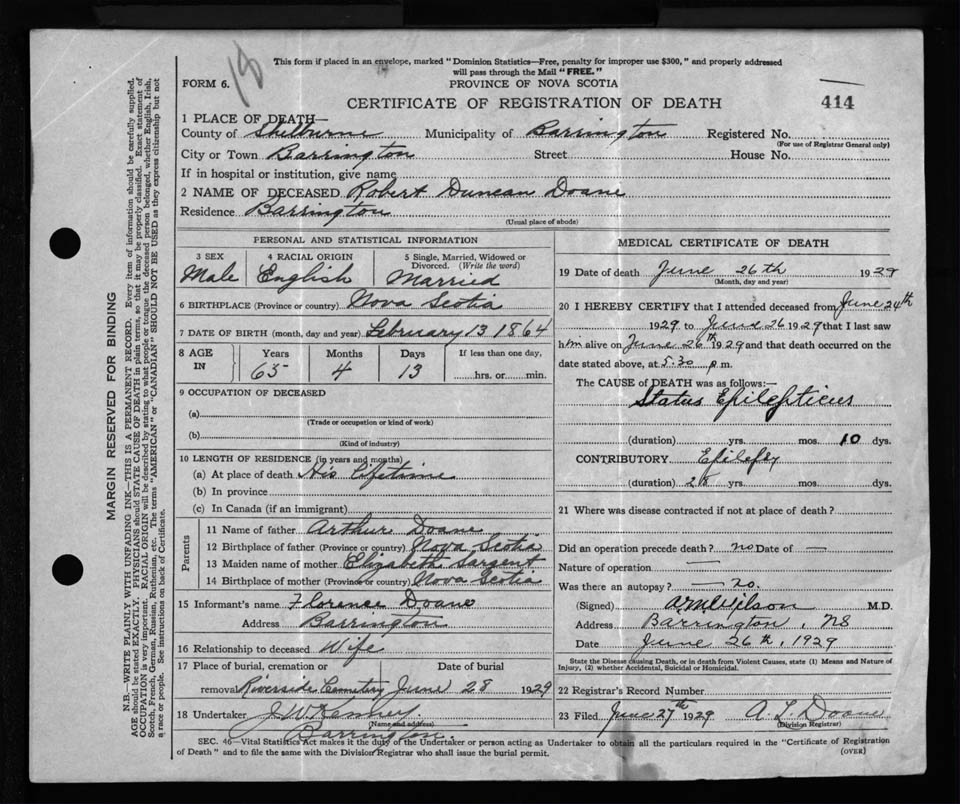 18
This form if placed in an envelope, marked "Dominion Statistics—Free, penalty for improper use $300," and properly addressed
will pass through the Mail "FREE."
FORM 6.
PROVINCE OF NOVA SCOTIA
CERTIFICATE OF REGISTRATION OF DEATH
414
1 PLACE OF DEATH—
County of Shelburne Municipality of Barrington Registered No.
(For use of Registrar General only)
City or Town Barrington Street House No.
If in hospital or institution, give name
2 NAME OF DECEASED Robert Duncan Doane
Residence Barrington
(Usual place of abode)
PERSONAL AND STATISTICAL INFORMATION
3 SEX 4 RACIAL ORIGIN 5 Single, Married, Widowed or
Divorced. (Write the word)
Male English Married
6 BIRTHPLACE (Province or country) Nova Scotia
7 DATE OF BIRTH (month, day and year) February 13 1864
8 AGE IN Years Months Days If less than one day,
65 4 13 hrs. or min.
9 OCCUPATION OF DECEASED
(a)
(Trade or occupation or kind of work)
(b)
(Kind of industry)
10 LENGTH OF RESIDENCE (in years and months)
(a) At place of death His Lifetime
(b) In province
(c) In Canada (if an immigrant)
Parents
11 Name of father Arthur Doane
12 Birthplace of father (Province or country) Nova Scotia
13 Maiden name of mother Elizabeth Sargent
14 Birthplace of mother (Province or country) Nova Scotia
15 Informant's name Florence Doane
Address Barrington
16 Relationship to deceased Wife
17 Place of burial, cremation or Date of burial
removal Riverside Cemetery June 28 1929
18 Undertaker J W
(Name and address)
Barrington.
MEDICAL CERTIFICATE OF DEATH
19 Date of death June 26th 1929
(Month, day and year)
20 I HEREBY CERTIFY that I attended deceased from June 24th
1929 to June 26 1929 that I last saw
him alive on June 26th 1929 and that death occurred on the
date stated above, at 5:30 p m.
The CAUSE of DEATH was as follows:—
Status Epilepticus
(duration) yrs. mos. 10 dys.
CONTRIBUTORY Epilepsy
(duration) 25 yrs. mos. dys.
21 Where was disease contracted if not at place of death?
Did an operation precede death? no Date of —
Nature of operation —
Was there an autopsy? — no.
(Signed) Wilson M.D.
Address Barrington, NS
Date June 26th, 1929
State the Disease causing Death, or in death from Violent Causes, state (1) Means and Nature of
Injury, (2) whether Accidental, Suicidal or Homicidal.
22 Registrar's Record Number
23 Filed June 27th 1929 A. L. Doane
(Division Registrar)
SEC. 46—Vital Statistics Act makes it the duty of the Undertaker or person acting as Undertaker to obtain all the particulars required in the "Certificate of Registration
of Death" and to file the same with the Division Registrar who shall issue the burial permit.
(OVER)
MARGIN RESERVED FOR BINDING
N.B.—WRITE PLAINLY WITH UNFADING INK—THIS IS A PERMANENT RECORD. Every item of information should be carefully supplied.
AGE should be stated EXACTLY. PHYSICIANS should STATE CAUSE OF DEATH in plain terms, so that it may be properly classified. Exact statement of
OCCUPATION is very important. RACIAL ORIGIN will be described by stating to what people or tongue the deceased person belonged, whether English, Irish,
Scotch, French, German, Russian, Ruthenian, etc. The terms "AMERICAN" or "CANADIAN" SHOULD NOT BE USED as they express citizenship but not
a race or people. See instructions on back of Certificate.